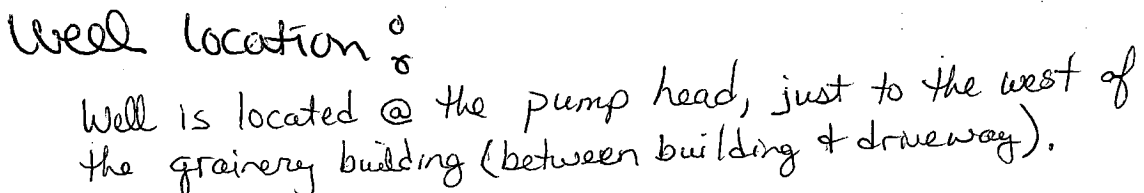 Well location:
Well is located @ the pump head, just to the west of
the grainery building (between building & driveway).